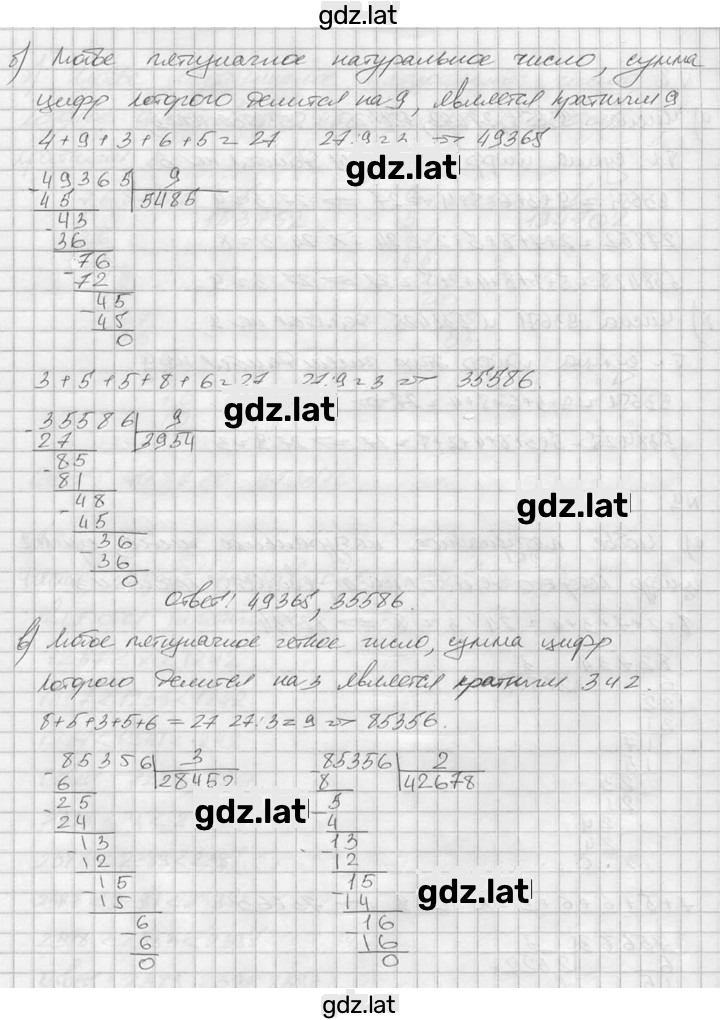 gdz.lat
б) Любое пятизначное натуральное число, сумма
цифр которого делится на 9, является кратным 9
4+9+3+6+5=27 27:9=3 => 49365
gdz.lat
-49365 | 9
45 5485
-43
36
-76
72
-45
45
0
3+5+5+8+6=27 27:9=3 => 35586.
gdz.lat
-35586 | 9
27 3954
-85
81
-48
45
-36
36
0
gdz.lat
Ответ: 49365, 35586.
в) Любое пятизначное четное число, сумма цифр
которого делится на 3 является кратным 3 и 2.
8+5+3+5+6=27 27:3=9 => 85356.
-85356 | 3
6 28452
-25
24
-13
12
-15
15
6
-6
0
gdz.lat
-85356 | 2
8 42678
-5
4
-13
12
-15
14
-16
16
0
gdz.lat
gdz.lat